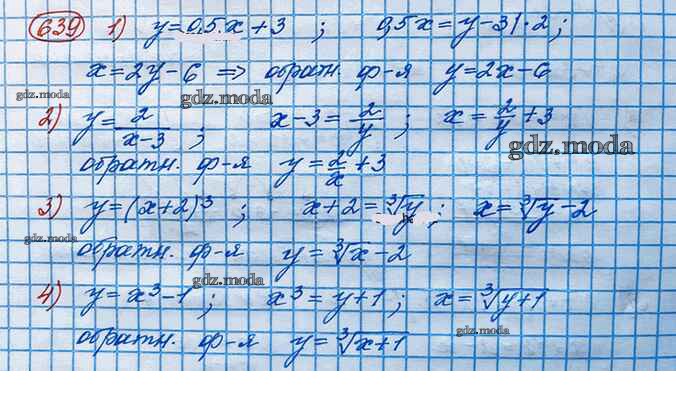 639 1) y=0,5x+3 ; 0,5x=y-3|·2;
x=2y-6 ⇒ обратн. ф-я y=2x-6
gdz.moda gdz.moda
2) y=2/(x-3) ; x-3=2/y ; x=2/y+3
gdz.moda
gdz.moda
обратн. ф-я y=2/x+3
3) y=(x+2)³ ; x+2=∛y ; x=∛y-2
gdz.moda
обратн. ф-я y=∛x-2
gdz.moda
4) y=x³-1 ; x³=y+1 ; x=∛(y+1)
gdz.moda
обратн. ф-я y=∛(x+1)